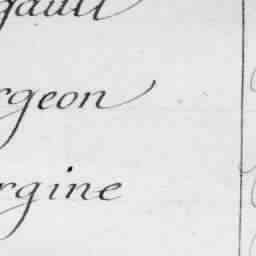 gault
rgeon
rgine